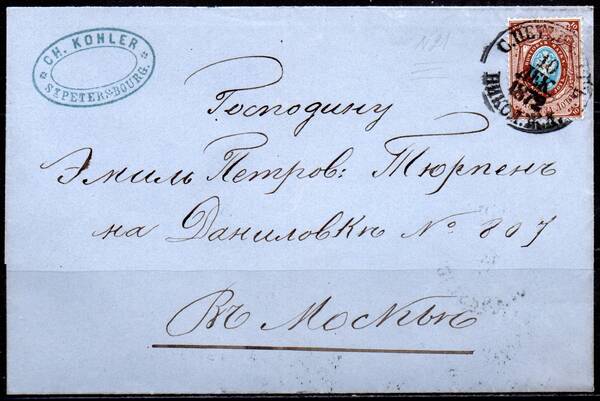 CH. KOHLER
ST. PETERSBOURG.
№1
Господину
Эмиль Петров: Тюрпенъ
на Даниловкѣ № 807
Въ Москвѣ
С.ПЕТ
10
ДЕК
1872
НИКОЛ. Ж.Д.